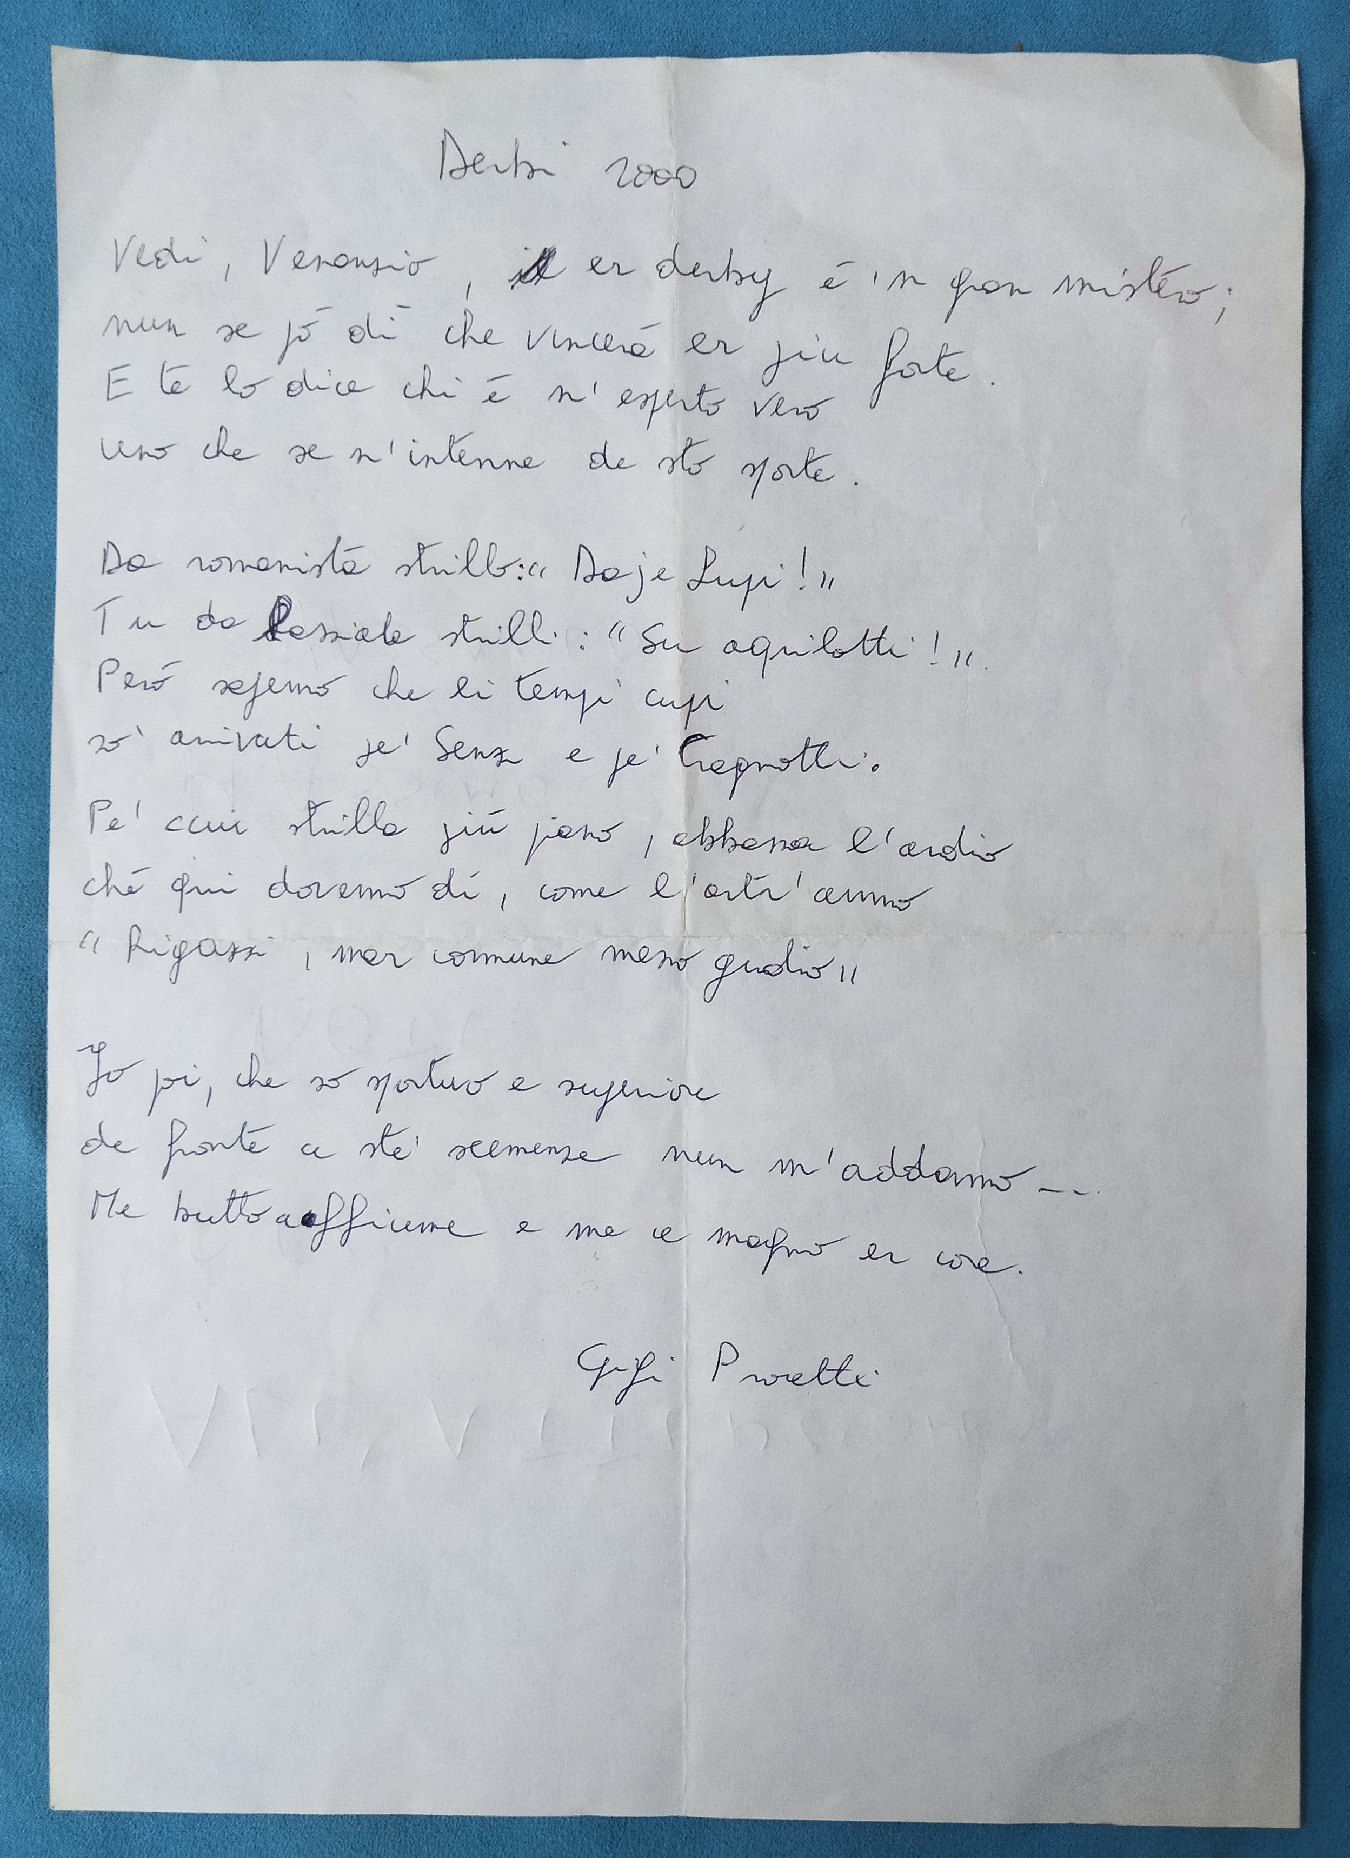 Derbi 2000
Vedi, Venanzio, er derby é 'n gran mistéro;
nun se pò dì che vincerà er piu forte.
E te lo dice chi é n' esperto vero
uno che se n'intenne de sto sporte.
Da romanista strillo: "Daje Lupi!"
Tu da Lazziale strilli: "Su aquilotti!".
Però sapemo che li tempi cupi
so' arrivati pe' Sensi e pe' Cragnotti.
Pe' cui strilla più piano, abbassa l'audio
ché qui dovemo dí, come l'artr'anno
"Rigazzi, mar commune mezzo gudio"
Io poi, che so sportivo e superiore
de fronte a ste' scemenze nun m'addanno ---
Me butto affiume e me ce magno er core.
Gigi Proietti